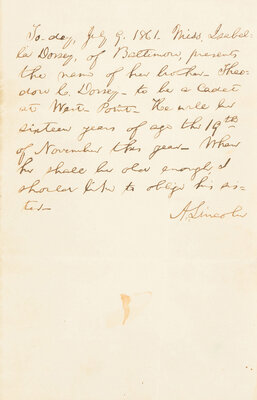 To-day, July 9. 1861. Miss, Isabel-
la Dorsey, of Baltimore, presents
the name of her brother- Theo-
dore C. Dorsey- to be a Cadet
at West- Point- He will be
sixteen years of age the 19th
of November this year- When
he shall be old enough, I
should like to oblige his sis-
ter-
A. Lincoln